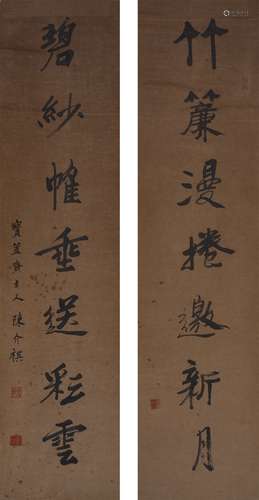 竹簾漫捲邀新月
碧紗帷垂送彩雲
寶簠齋主人陳介祺